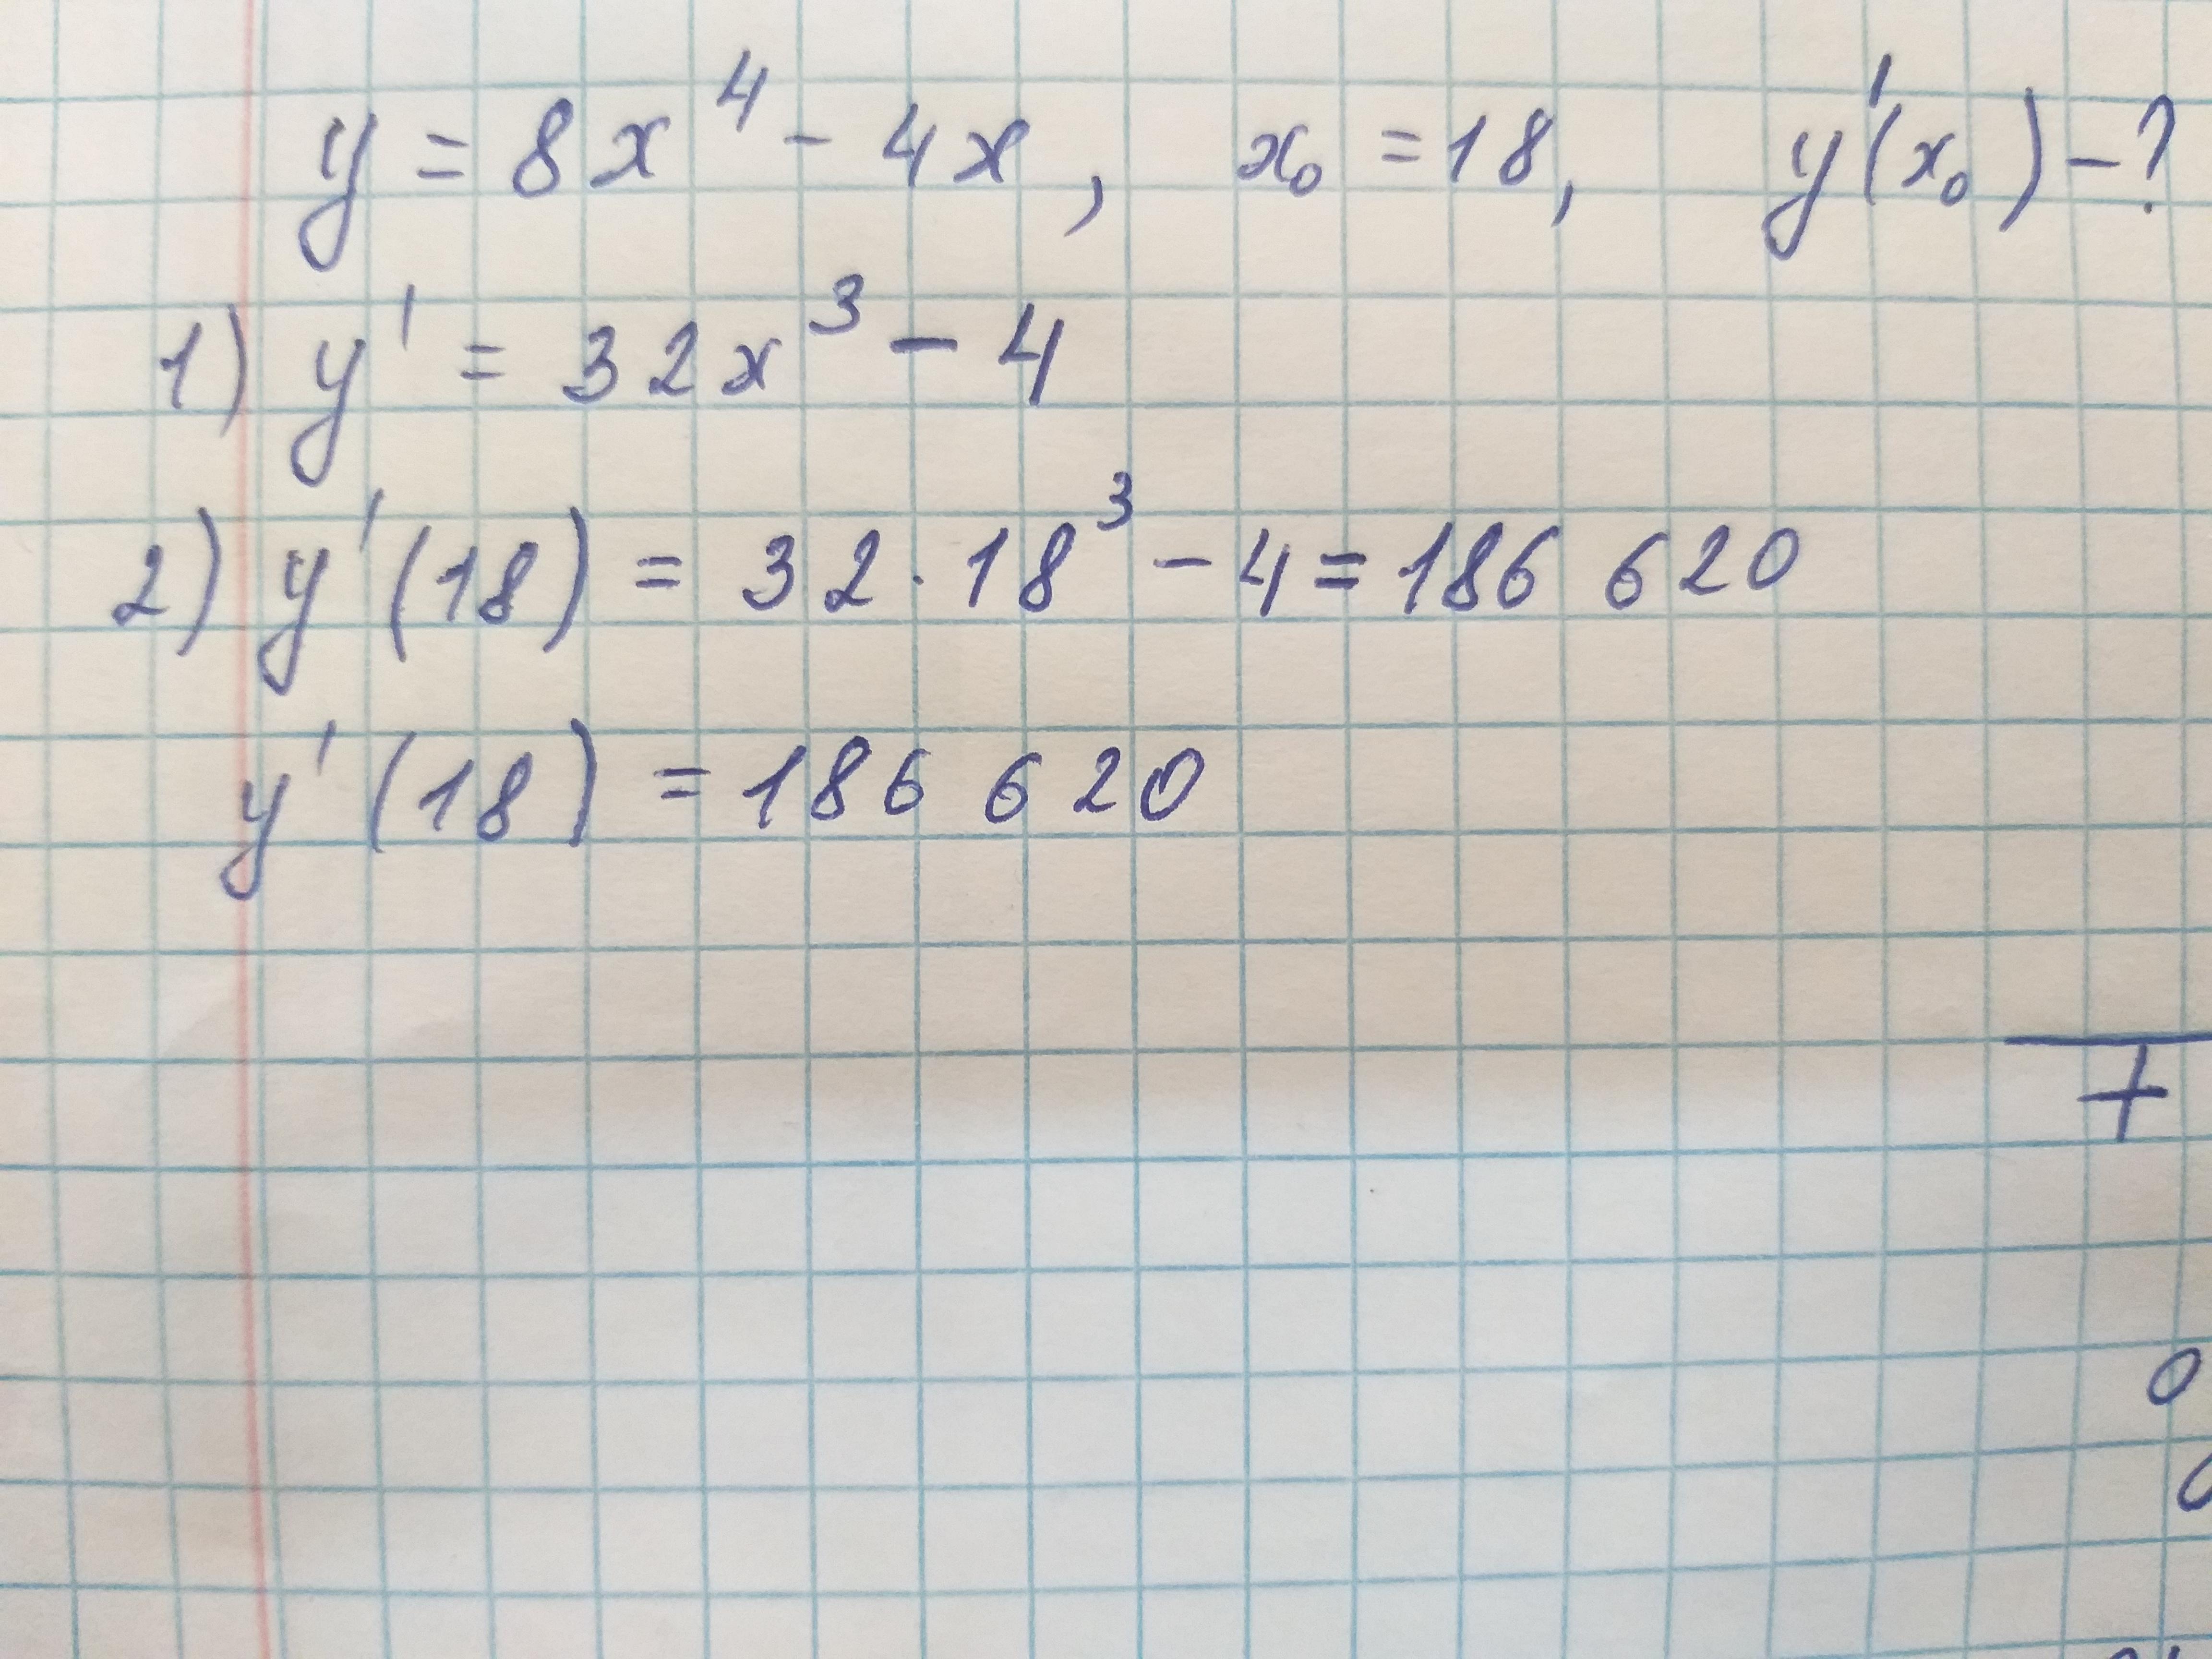 y = 8x⁴ - 4x, x₀ = 18, y'(x₀) - ?
1) y' = 32x³ - 4
2) y'(18) = 32 · 18³ - 4 = 186 620
y'(18) = 186 620